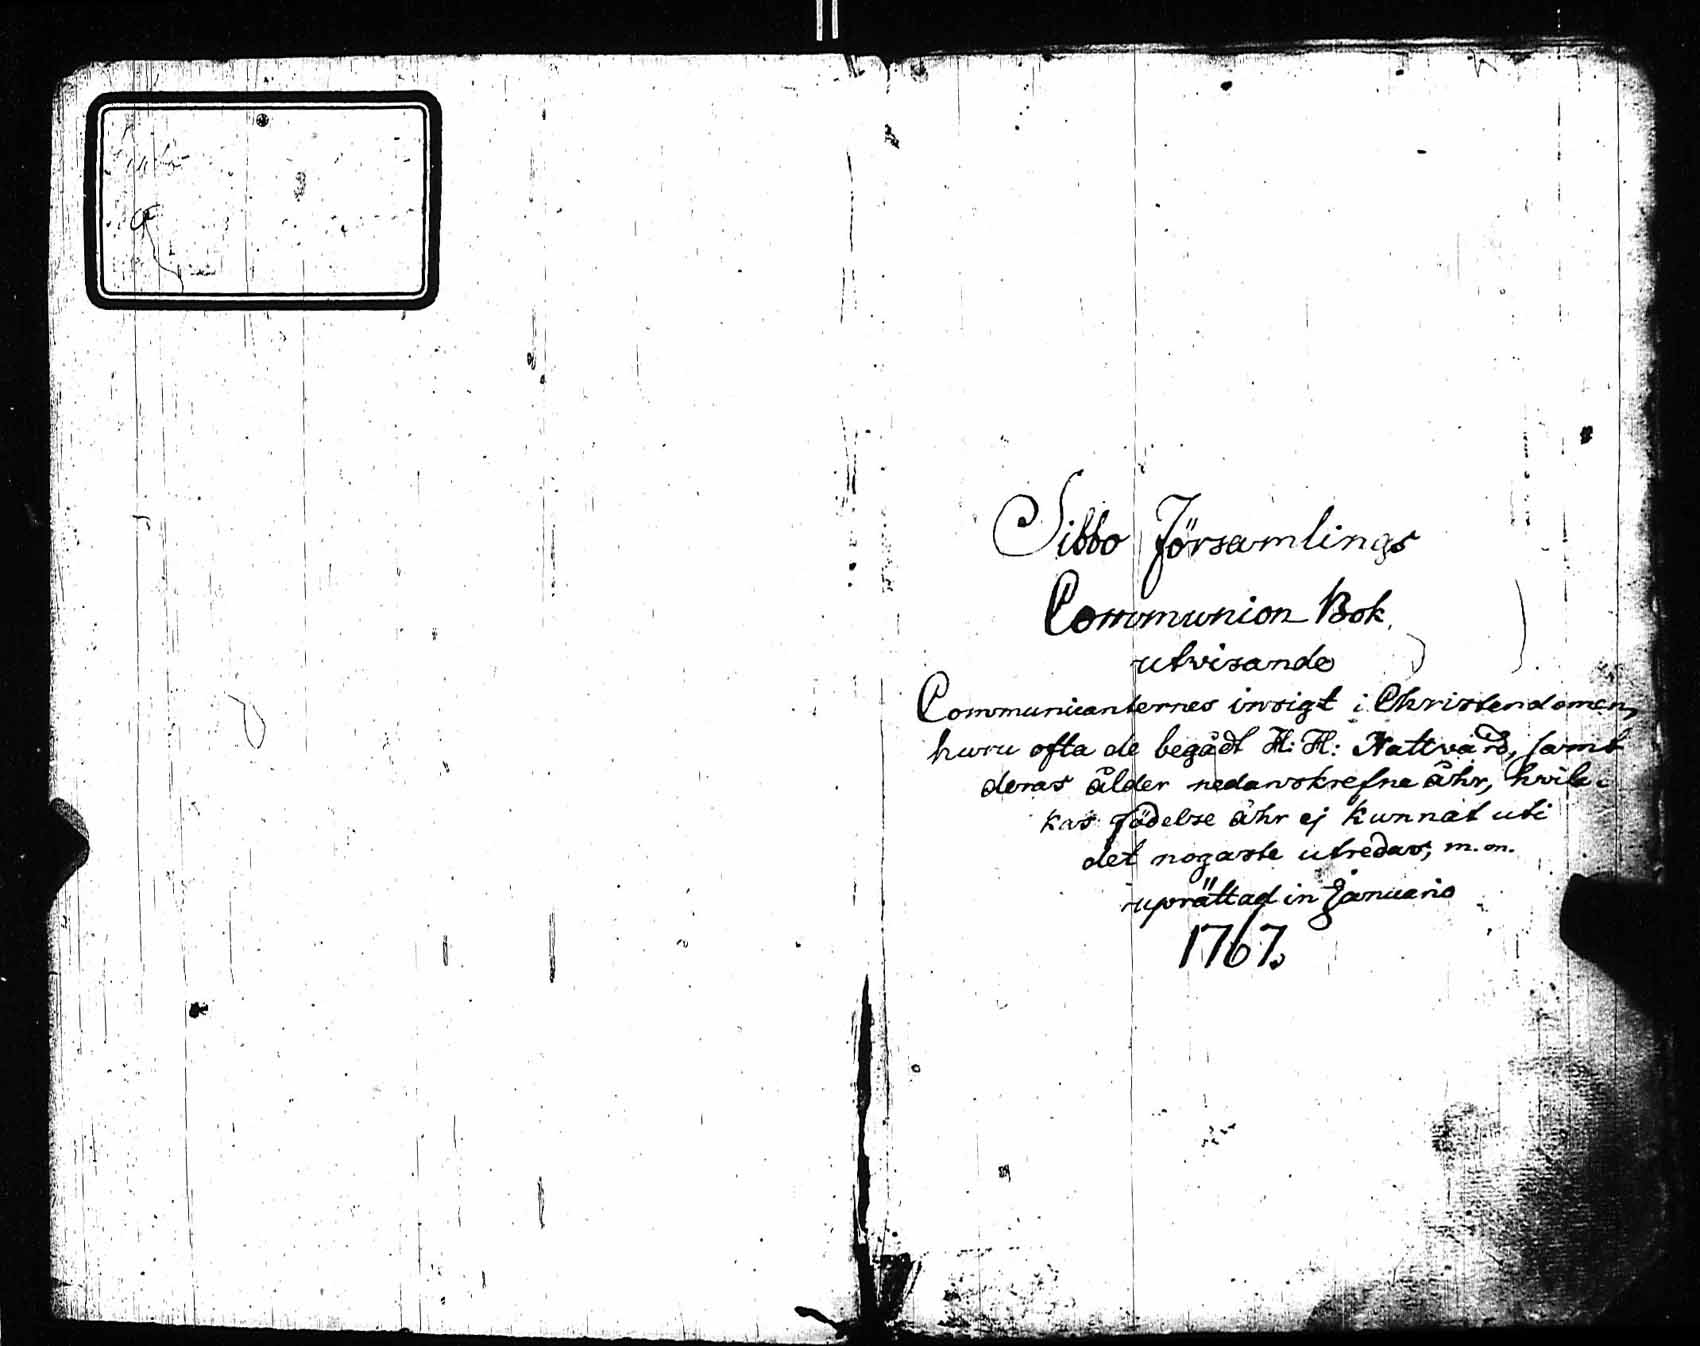 Sibbo Församlings
Communion Bok
utvisande
Communicanternes insigt i Christendomen,
huru ofta de begådt H: H: Nattvard, samt
deras ålder nedanskrefne åhr, hvil-
kas födelse åhr ej kunnat uti
det nogaste utredas, m. m.
uprättad in Januario
1767.